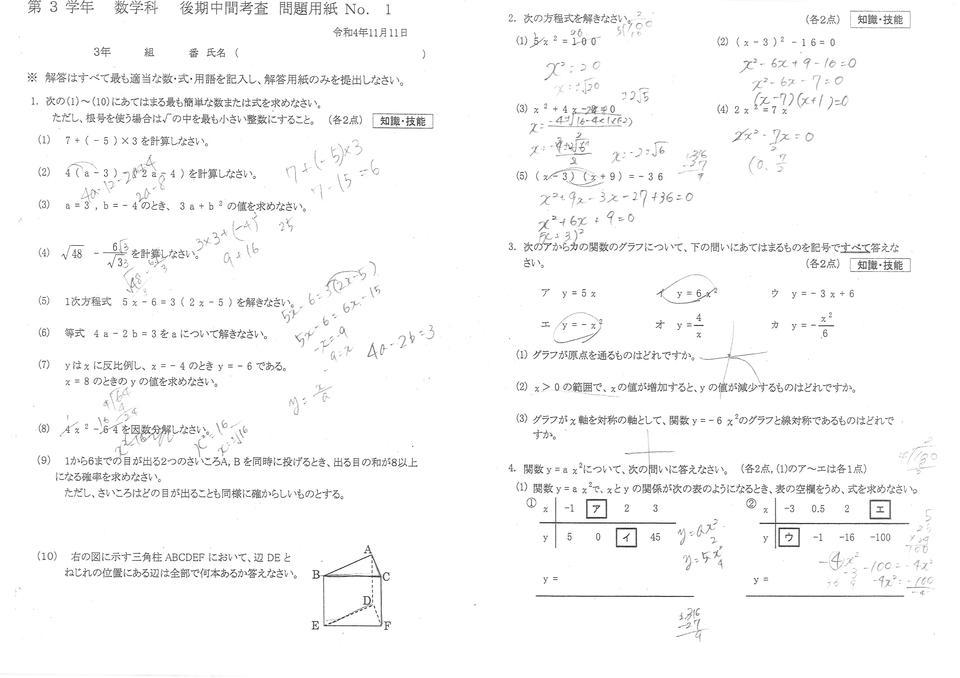 第 3 学年 数学科 後期中間考査 問題用紙 No. 1
令和4年11月11日
3年 組 番 氏名 ( )
※ 解答はすべて最も適当な数・式・用語を記入し、解答用紙のみを提出しなさい。
1. 次の(1)～(10)にあてはまる最も簡単な数または式を求めなさい。
ただし、根号を使う場合は√の中を最も小さい整数にすること。 (各2点) 知識・技能
(1) 7+(-5)×3を計算しなさい。
7+(-5)×3
7-15=6
(2) 4(a-3)-(2a-4)を計算しなさい。
4a-12-2a+4
2a-8
(3) a=3,b=-4のとき、3a+b²の値を求めなさい。
3×3+(-4)²
9+16
25
(4) √48 - 6/√3 を計算しなさい。
(5) 1次方程式 5x-6=3(2x-5)を解きなさい。
5x-6=3(2x-5)
5x-6=6x-15
-x=-9
(6) 等式 4a-2b=3をaについて解きなさい。
4a-2b=3
(7) yはxに反比例し、x=-4のときy=-6である。
x=8のときのyの値を求めなさい。
(8) 4x²-64を因数分解しなさい。
(9) 1から6までの目が出る2つのさいころA, Bを同時に投げるとき、出る目の和が8以上
になる確率を求めなさい。
ただし、さいころはどの目が出ることも同様に確からしいものとする。
(10) 右の図に示す三角柱ABCDEFにおいて、辺DEと
ねじれの位置にある辺は全部で何本あるか答えなさい。
A
B C
D
E F
2. 次の方程式を解きなさい。 (各2点) 知識・技能
(1) 5x²=100
x²=20
x=±√20
±2√5
(2) (x-3)²-16=0
x²-6x+9-16=0
x²-6x-7=0
(x-7)(x+1)=0
(3) x²+4x-2=0
x=-2±√6
(4) 2x²=7x
2x²-7x=0
(5) (x-3)(x+9)=-36
x²+9x-3x-27+36=0
x²+6x+9=0
(x+3)²
3. 次のアからカの関数のグラフについて、下の問いにあてはまるものを記号ですべて答えな
さい。 (各2点) 知識・技能
ア y=5x イ y=6x² ウ y=-3x+6
エ y=-x² オ y=4/x カ y=-x²/6
(1) グラフが原点を通るものはどれですか。
(2) x>0の範囲で、xの値が増加すると、yの値が減少するものはどれですか。
(3) グラフがx軸を対称の軸として、関数y=-6x²のグラフと線対称であるものはどれで
すか。
4. 関数y=ax²について、次の問いに答えなさい。 (各2点、(1)のア～エは各1点)
(1) 関数y=ax²で、xとyの関係が次の表のようになるとき、表の空欄をうめ、式を求めなさい。
① x -1 ア 2 3
y 5 0 イ 45
y=
y=ax²
y=5x²
② x -3 0.5 2 エ
y ウ -1 -16 -100
y=
-4x²
-100=-4x²